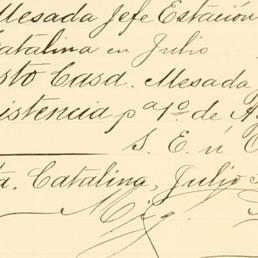 Mesada Jefe Estación
Catalina en Julio
sto Casa. Mesada
istencia pª 1º de A
S. E. ú O
ta. Catalina, Julio
Mig.